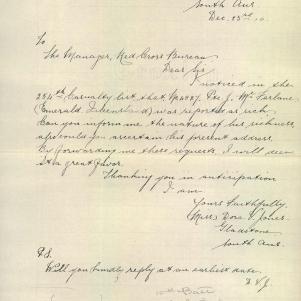 South Aus
Dec. 23rd
To
The Manager, Red Cross Bureau
Dear Sir
I noticed in the
254th Casualty list that No 4487. Pte J. McFarlane
(Emerald Queensland) was reported as sick.
Can you inform me the nature of his sickness,
also could you ascertain his present address.
By forwarding me these requests, I will deem
it a great favor.
Thanking you in anticipation
I am
Yours Faithfully.
Miss Dora V. Jones.
Gladstone
South Aus.
P.S.
Will you kindly reply at an earliest date.
D.V.J.